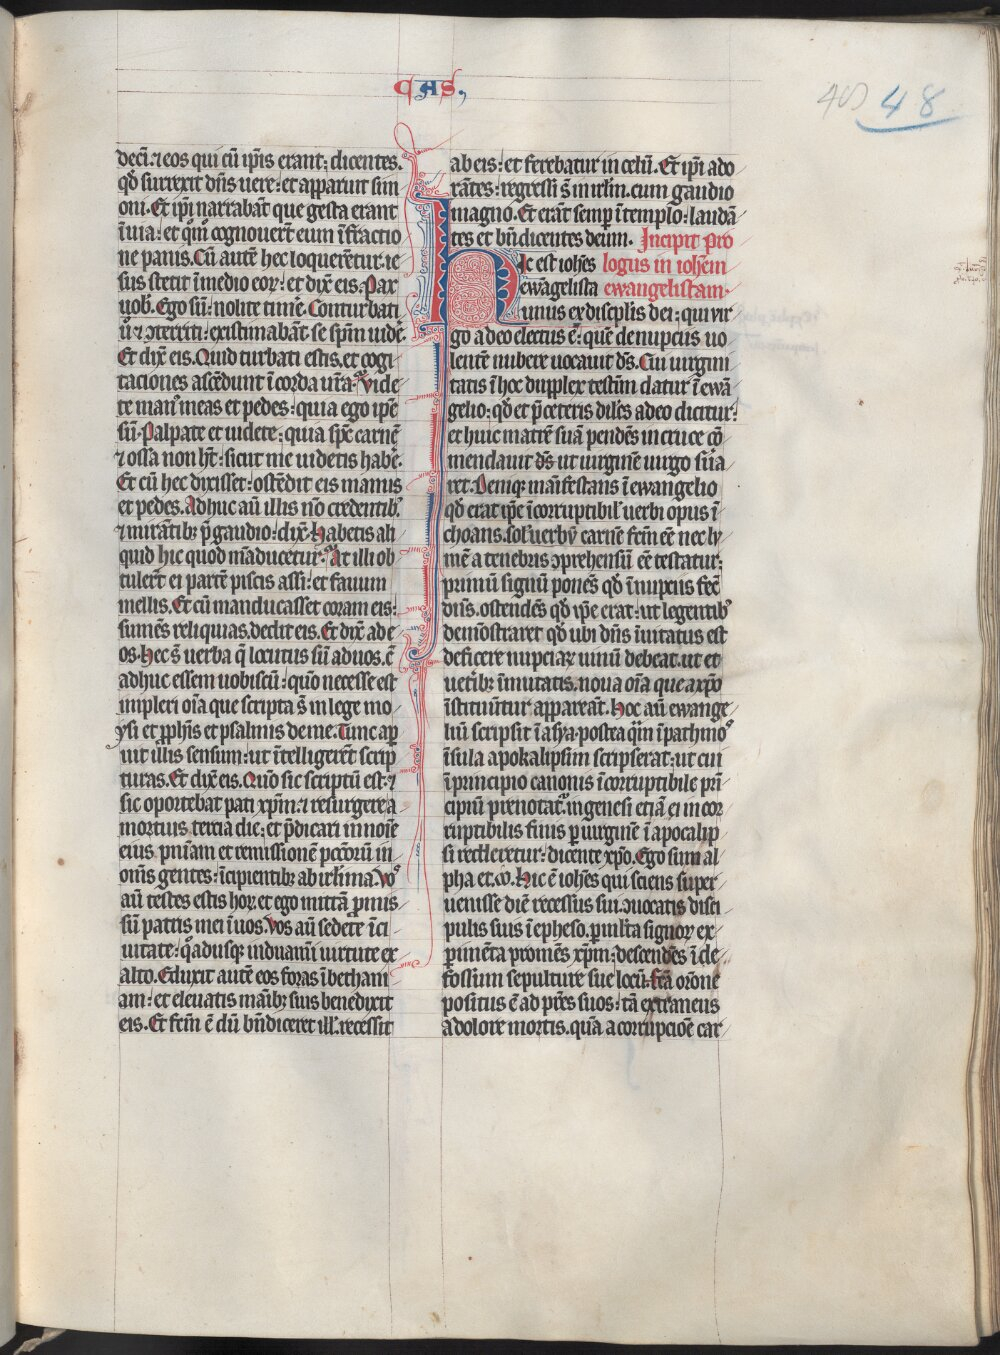 CAS,
48
decī. ⁊ eos qui cū ip̄is erant: dicentes.
qđ surrexit dn̄s uere: et apparuit sim
oni. Et ip̄i narrabāt que gesta erant
ī uia: et qm̄ cognouert̄ eum ī fractio
ne panis. Cū autē hec loquerētur. ie
sus stetit ī medio eoꝝ: et dix̄ eis. Pax
uob̄. Ego sū: nolite timē. Conturbati
ū ⁊ ꝯterriti: existimabāt se sp̄m uidē.
Et dix̄ eis. Quid turbati estis. et cogi
taciones ascēdunt ī corda ur̄a. Vide
te man᾽ meas et pedes: quia ego ip̄e
sū. Palpate et uidete: quia sp̄c carnē
⁊ ossa non hn̄t: sicut me uidetis habē.
Et cū hec dixisset: ostēdit eis manus
et pedes. Adhuc aū illis nō credentib᾽
⁊ mirātib᾽ p̄ gaudio: dix̄. Habetis ali
quid hic quod māducetur. At illi ob
tulert̄ ei partē piscis assi: et fauum
mellis. Et cū manducasset coram eis:
sumēs reliquias. dedit eis. Et dix̄ ad e
os. Hec s̄ uerba q̄ locutus sū ad uos. c̄
adhuc essem uobiscū: quō necesse est
impleri oīa que scripta s̄ in lege mo
ysi et ꝓphīs et psalmis de me. Tunc ap
uit illis sensum: ut ītelligerēt scrip
turas. Et dix̄ eis. Quō sic scriptū est. ⁊
sic oportebat pati xp̄m. ⁊ resurgere a
mortuis tercia die: et p̄dicari in noīe
eius pn̄iam et remissionē pccōrū in
om̄s gentes: īcipientib᾽ ab irl̄ima. Vo᾽
aū testes estis hoꝝ. et ego mittā ꝓmis
sū patris mei ī uos. Vos aū sedete ī ci
uitate: q̄adusq᾽ induam̄ī uirtute ex
alto. Eduxit autē eos foras ī bethani
am: et eleuatis māib᾽ suis benedixit
eis. Et fc̄m ē dū bn̄diceret ill᾽. recessit
ab eis: et ferebatur in celū. Et ip̄i ado
rātes: regressi s̄ in irl̄m. cum gaudio
magno. Et erāt semp̄ ī templo: laudā
tes et bn̄dicentes deum. Incipit pro
Hic est ioh̄es logus in ioh̄em
ewāgelista ewangelistam.
unus ex discip̄lis dei: qui vir
go a deo electus ē: quē de nupciis uo
lentē nubere uocauit dō̄s. Cui uirgini
tatis ī hoc dupplex testīm datur ī ewā
gelio: qđ et p̄ ceteris dil̄c̄s a deo dicitur:
et huic matrē suā pendēs in cruce cō
mendauit dō̄s ut uirginē uirgo s̄ua
ret. Deniq᾽ māifestans ī ewangelio
qđ erat ip̄e ī corruptibil᾽ uerbi opus ī
choans. sol᾽ uerbū carnē fc̄m eē nec ly
mē a tenebris ꝯprehensū eē testatur:
primū signū ponēs qđ ī nupciis fec̄
dn̄s. ostendēs qđ ip̄e erat: ut legentib᾽
demōstraret qđ ubi dn̄s īuitatus est
deficere nupciaꝝ uinū debeat. ut et
uetib᾽ īmutatis. noua oīa que a xp̄o
īstituūtur appareāt. Hoc aū ewange
liū scripsit ī asya. postea q̄m ī pathmo᾽
īsula apokalipsim scripserat: ut cui
ī principio canonis īcorruptibile pri
cipiū prenotat᾽. in genesi etiā ei incor
ruptibilis finis ꝑ uirginē ī apocalip
si redderetur: dicente xp̄o. Ego sum al
pha et .ω. Hic ē ioh̄es qui sciens super
uenisse diē recessus sui. ꝯuocatis disci
pulis suis ī epheso. ꝑ multa signoꝝ ex
ꝑimēta promēs xp̄m: descendēs ī de
fossum sepulture sue locū. fc̄ā or̄one
positus ē ad pr̄es suos: tā extraneus
a dolore mortis. quā a corrupcioē car